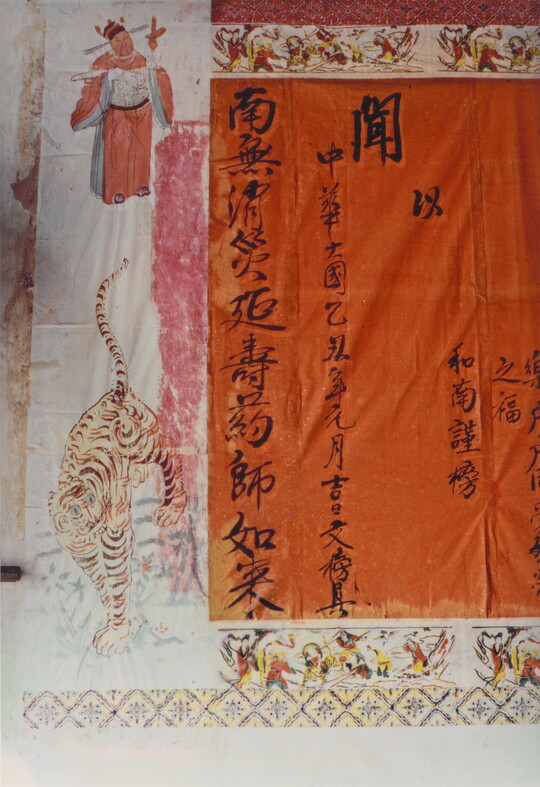 之福
和南謹榜
以
聞
中華大國乙丑年元月吉日文榜具
南無消災延壽葯師如来